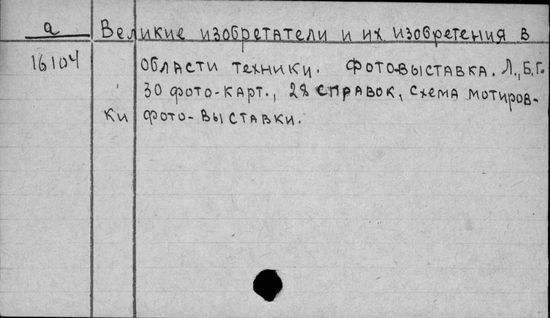 а Великие изобретатели и их изобретения в
16104 области техники. Фото-выставка. Л., Б.Г.
30 фото-карт., 28 справок, схема мотиров-
ки фото-выставки.